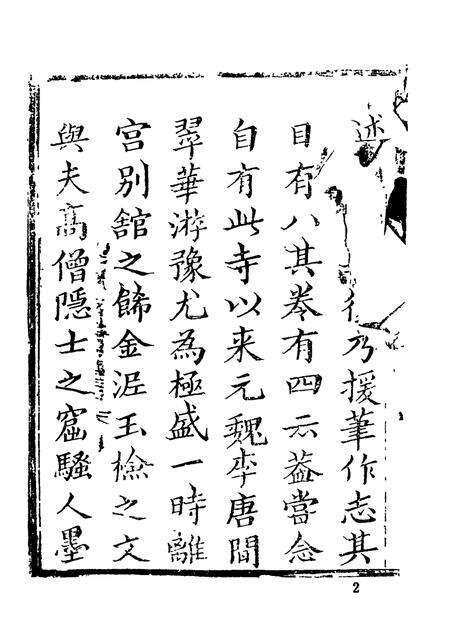 述乃援筆作志其
目有八其卷有四云蓋嘗念
自有此寺以来元魏李唐間
翠華游豫尤為極盛一時離
宫别舘之餙金泥玉檢之文
與夫髙僧隠士之窟騷人墨
2